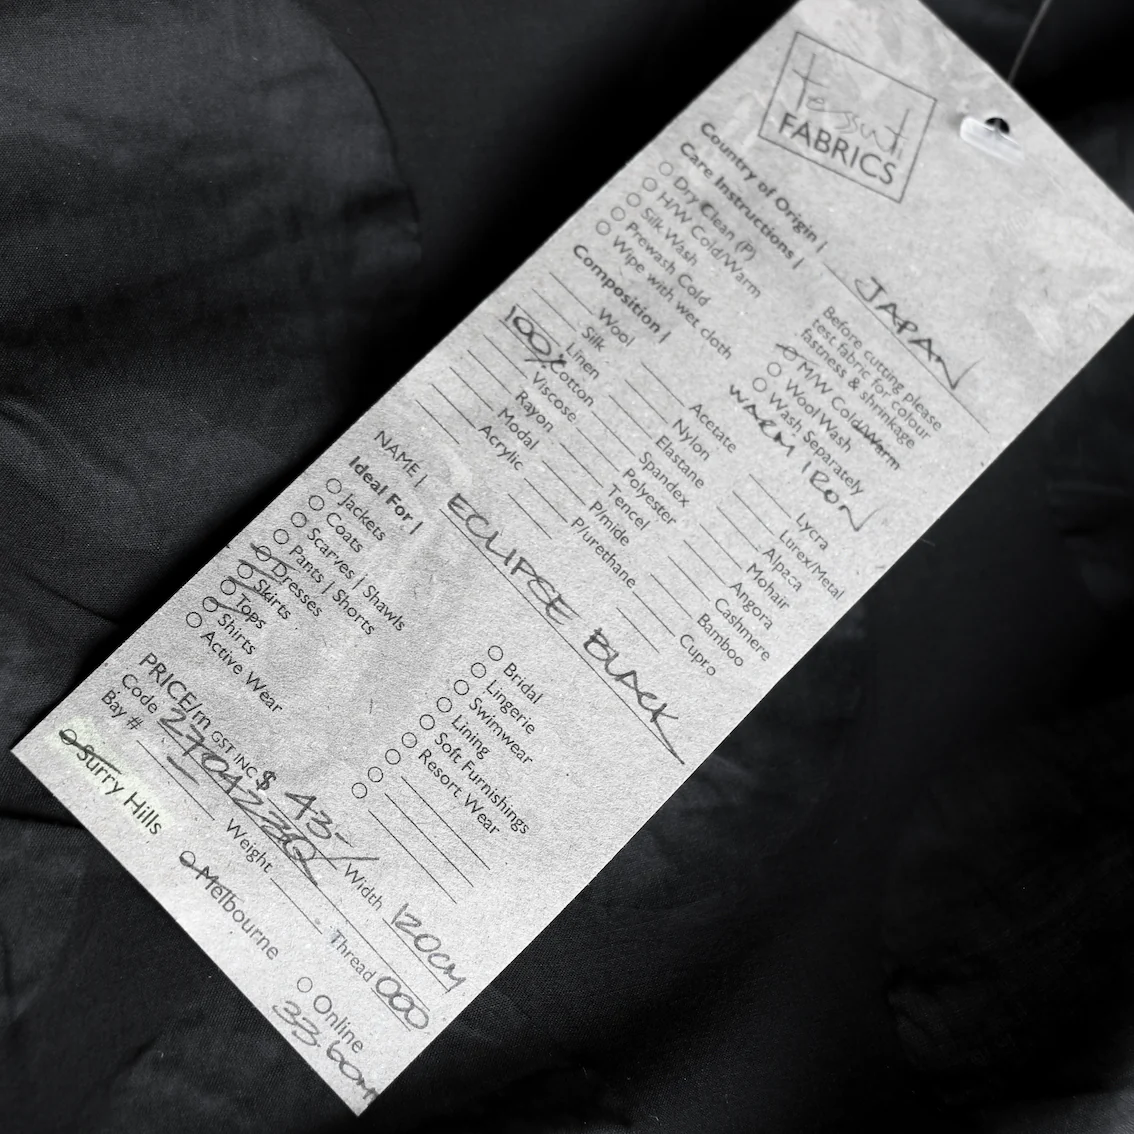 tessuti
FABRICS
Country of Origin | JAPAN
Care Instructions |
Before cutting please
test fabric for colour
fastness & shrinkage
Dry Clean (P)
H/W Cold/Warm
Silk Wash
Prewash Cold
Wipe with wet cloth
M/W Cold/Warm
Wool Wash
Wash Separately
WARM IRON
Composition |
Wool
Silk
Linen
100% Cotton
Viscose
Rayon
Modal
Acrylic
Acetate
Nylon
Elastane
Spandex
Polyester
Tencel
P/mide
P/urethane
Lycra
Lurex/Metal
Alpaca
Mohair
Angora
Cashmere
Bamboo
Cupro
NAME | ECLIPSE BLACK
Ideal For |
Jackets
Coats
Scarves | Shawls
Pants | Shorts
Dresses
Skirts
Tops
Shirts
Active Wear
Bridal
Lingerie
Swimwear
Lining
Soft Furnishings
Resort Wear
PRICE/m GST INC $ 43-
Width 120CM
Code
Thread 000
Bay #
Weight
Surry Hills
Melbourne
Online
33.60m